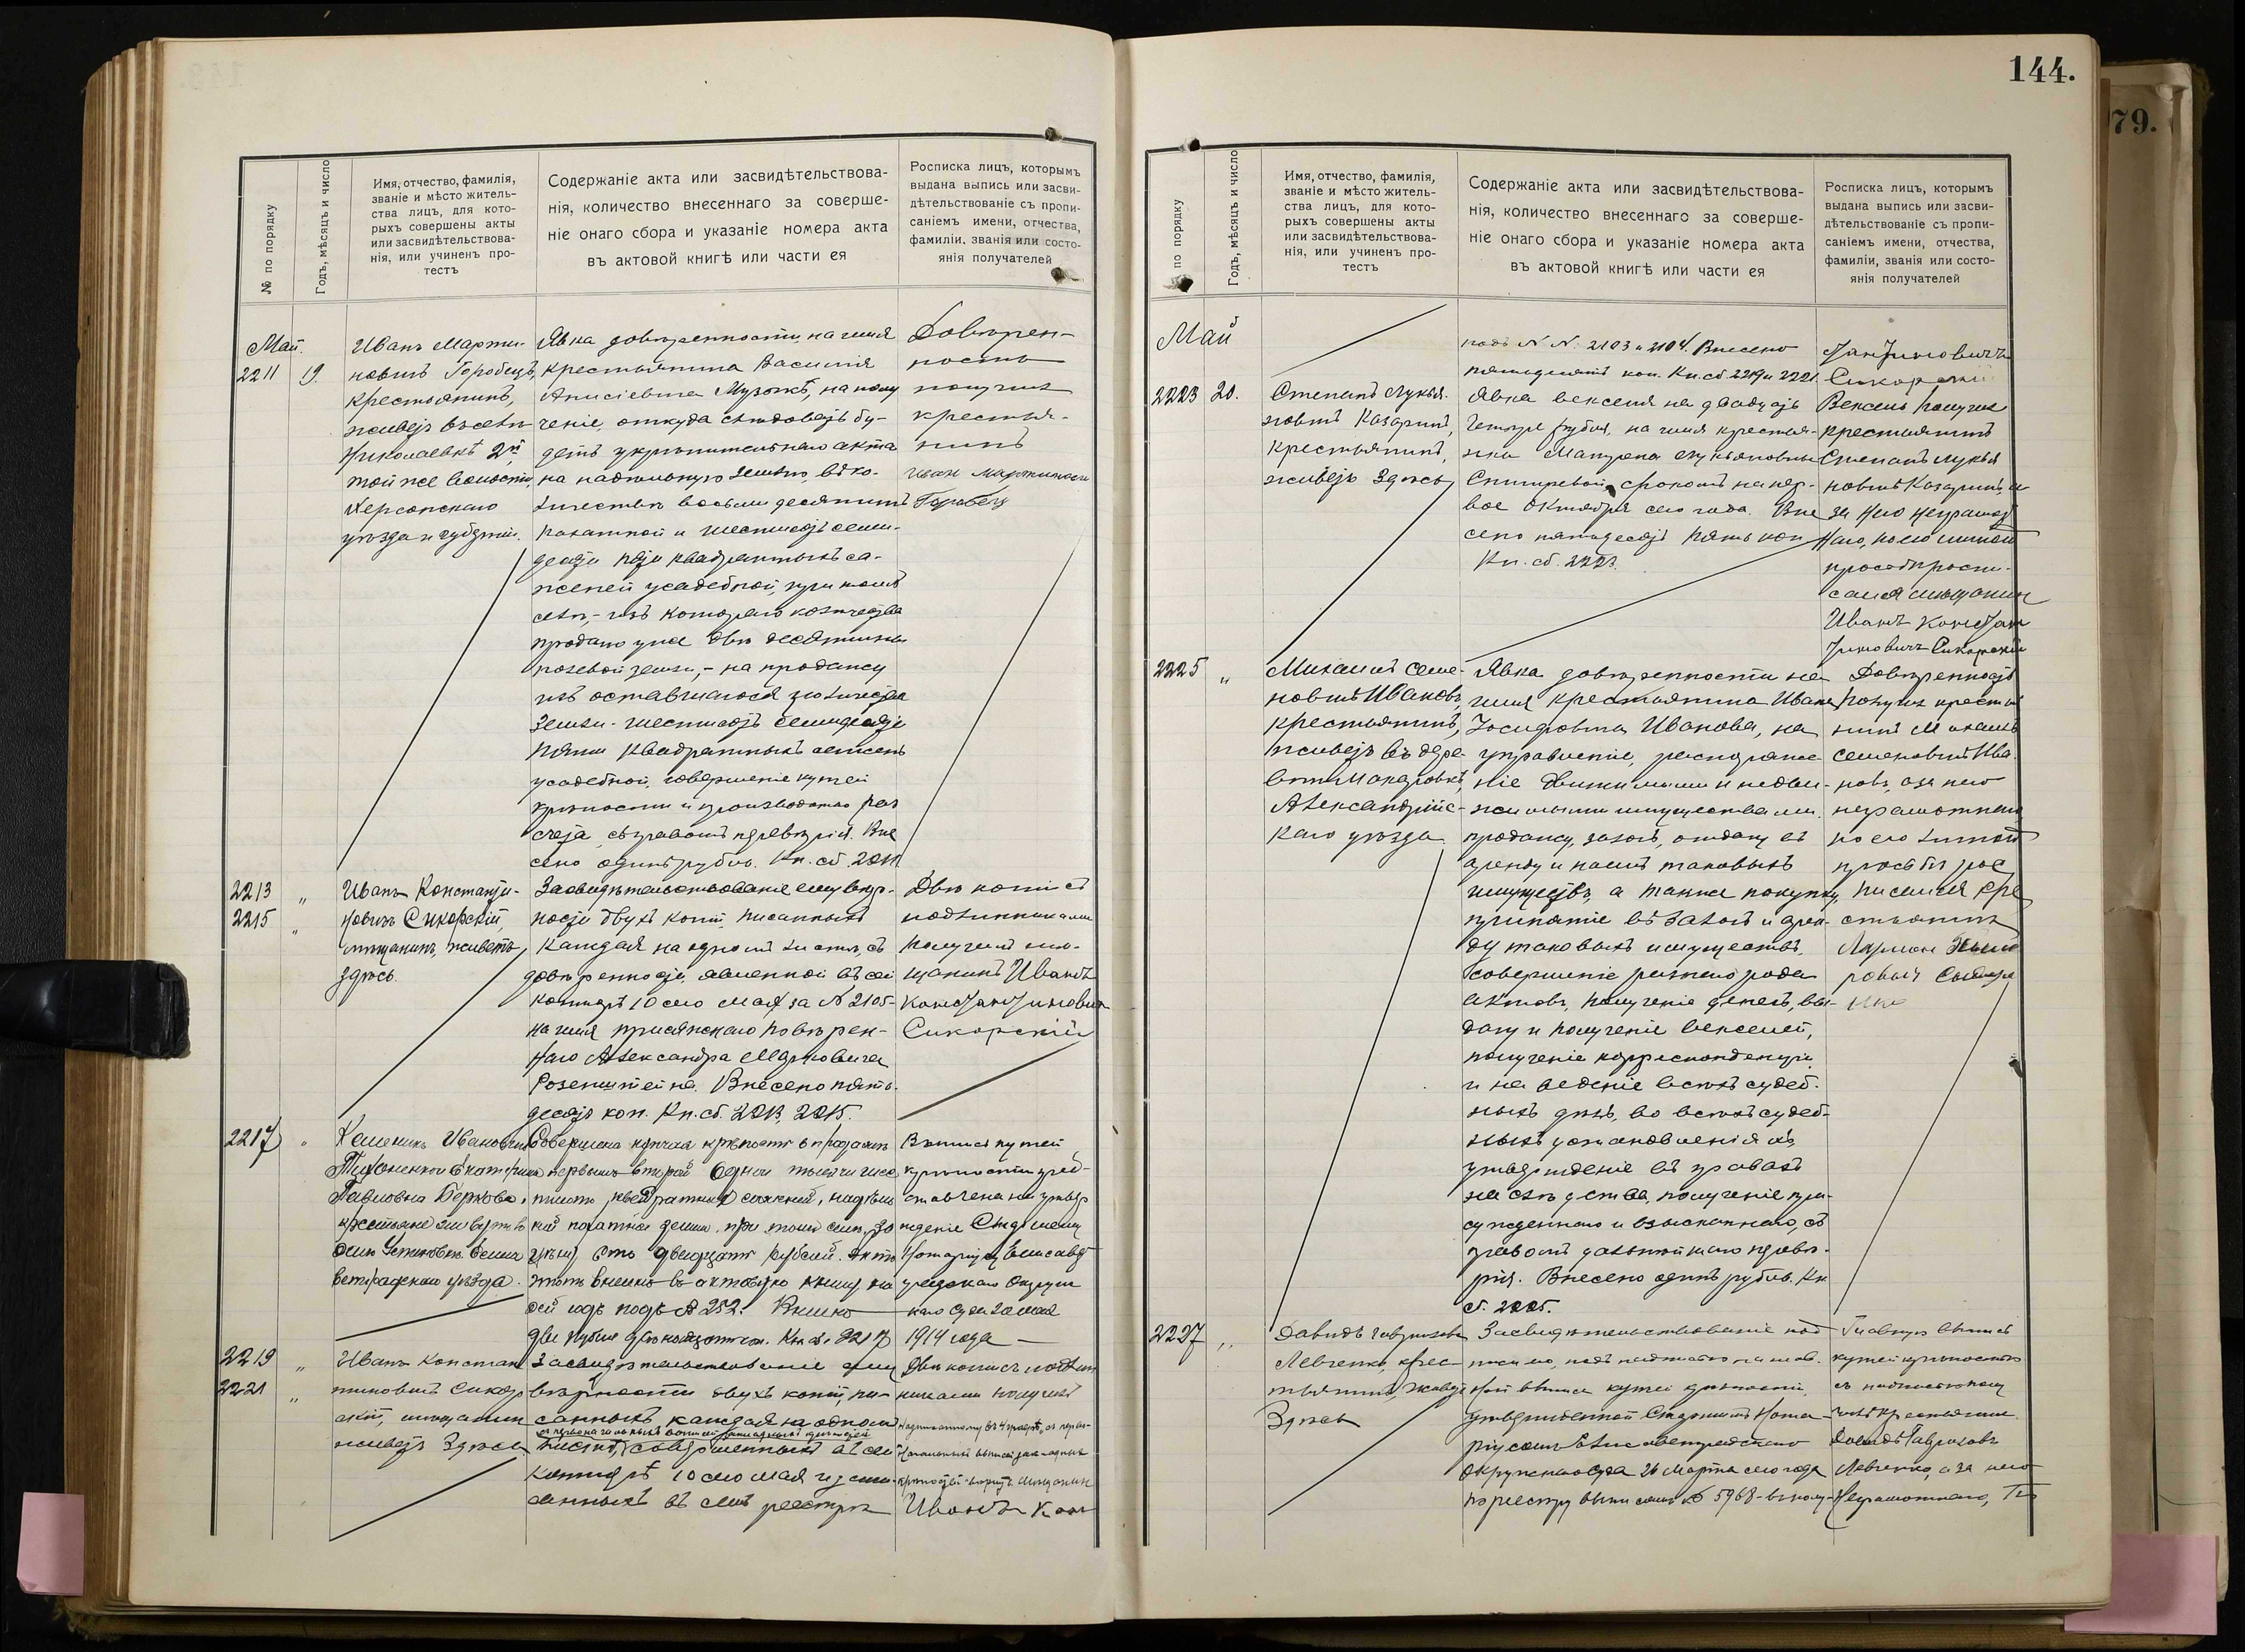 144.
79.
№ по порядку
Годъ, мѣсяцъ и число
Имя, отчество, фамилія,
званіе и мѣсто житель-
ства лицъ, для кото-
рыхъ совершены акты
или засвидѣтельствова-
нія, или учиненъ про-
тестъ
Содержаніе акта или засвидѣтельствова-
нія, количество внесеннаго за соверше-
ніе онаго сбора и указаніе номера акта
въ актовой книгѣ или части ея
Росписка лицъ, которымъ
выдана выпись или засви-
дѣтельствованіе съ пропи-
саніемъ имени, отчества,
фамиліи, званія или состо-
янія получателей
Май.
2211 19.
Иванъ Марти-
новичъ Горобецъ,
крестьянинъ,
живетъ въ селѣ
Николаевкѣ 2й,
той же волости,
Херсонскаго
уѣзда и губерніи.
Явка довѣренности на имя
крестьянина Василія
Анисіевича Музыкѣ, на полу
ченіе, откуда слѣдовать бу-
детъ укрѣпительнаго акта
на надѣльную землю, въ ко-
личествѣ восьми десятинъ
пахатной и шестисотъ семи-
десяти пяти квадратныхъ са-
женей усадебной, при томъ
селѣ, - изъ котораго количества
продано уже двѣ десятины
полевой земли, - на продажу
изъ оставшагося количества
земли - шестисотъ семидесяти
пяти квадратныхъ саженъ
усадебной, совершеніе купчей
крѣпости и производство раз
счета, съ правомъ передовѣрія. Вне
сено одинъ рубль. Кн. сб. 2211
Довѣрен-
ность
получилъ
крестья-
нинъ
Иванъ Мартинович
Горобецъ
2213 "
2215 "
Иванъ Константи-
новичъ Сикорскій,
мѣщанинъ, живетъ
здѣсь.
Засвидѣтельствованіе ему вѣр-
ности двухъ копій, писанныхъ
каждая на одномъ листѣ, съ
довѣренности, явленной въ сей
конторѣ 10 сего мая за № 2105
на имя присяжнаго повѣрен-
наго Александра Марковича
Розенштейна. Внесено пять-
десятъ коп. Кн. сб. 2213, 2215.
Двѣ копіи съ
подлинниками
получилъ мѣ-
щанинъ Иванъ
Константиновичъ
Сикорскій
2217 "
Ивановичъ
Павловна
Совершена купчая крѣпость о продажѣ
первымъ второй одной тысячи
квадратныхъ саженей,
пахатной земли, при томъ селѣ, за
цѣну сто двадцать рублей. Актъ
этотъ внесенъ въ актовую книгу на
сей годъ подъ № 252. Внесено
два рубля двѣнадцать коп. Кн. сб. 2217
Выпись купчей
крѣпости пред-
ставлена на утвер
жденіе Старшему
Нотаріусу Елисавет
градскаго Окруж
наго Суда 20 мая
1914 года
2219 "
2221 "
Иванъ Констан
тиновичъ Сикор
скій, мѣщанинъ
живетъ здѣсь
Засвидѣтельствованіе ему
вѣрности двухъ копій, пи-
санныхъ каждая на одномъ
листѣ, совершенныхъ въ сей
конторѣ 10 сего мая и запи-
санныхъ въ семъ реестрѣ
Двѣ копіи съ подлин
никами получилъ
мѣщанинъ
Иванъ Кон
№ по порядку
Годъ, мѣсяцъ и число
Имя, отчество, фамилія,
званіе и мѣсто житель-
ства лицъ, для кото-
рыхъ совершены акты
или засвидѣтельствова-
нія, или учиненъ про-
тестъ
Содержаніе акта или засвидѣтельствова-
нія, количество внесеннаго за соверше-
ніе онаго сбора и указаніе номера акта
въ актовой книгѣ или части ея
Росписка лицъ, которымъ
выдана выпись или засви-
дѣтельствованіе съ пропи-
саніемъ имени, отчества,
фамиліи, званія или состо-
янія получателей
Май
подъ № №. 2103 и 2104. Внесено
пятьдесятъ коп. Кн. сб. 2219 и 2221.
стантиновичъ
Сикорскій
2223 20.
Степанъ Лукья-
новичъ Казаринъ,
крестьянинъ,
живетъ здѣсь
Явка векселя на двадцать
четыре рубля, на имя крестья-
нки Матрены Лукьяновны
срокомъ на пер-
вое октября сего года. Вне
сено пятьдесятъ пять коп
Кн. сб. 2223.
Вексель получилъ
крестьянинъ
Степанъ Лукья
новичъ Казаринъ, а
за него неграмот
наго, по его личной
просьбѣ распи-
сался мѣщанин
Иванъ Констан
тиновичъ Сикорскій
2225 "
Михаилъ Семе-
новичъ Ивановъ,
крестьянинъ,
живетъ въ дере-
внѣ Макаровкѣ,
Александрійс-
каго уѣзда
Явка довѣренности на
имя крестьянина Ивана
Іосифовича Иванова, на
управленіе, распоряже
ніе движимыми и недви-
жимыми имуществами,
продажу, залогъ, отдачу въ
аренду и наемъ таковыхъ
имуществъ, а также покупку,
принятіе въ залогъ и арен-
ду таковыхъ имуществъ,
совершеніе разнаго рода
актовъ, полученіе денегъ, вы-
дачу и полученіе векселей,
полученіе корреспонденціи
и на веденіе всѣхъ судеб-
ныхъ дѣлъ, во всѣхъ судеб-
ныхъ установленіяхъ,
утвержденіе въ правахъ
наслѣдства, полученіе при-
сужденнаго и взысканнаго, съ
правомъ дальнѣйшаго передовѣ-
рія. Внесено одинъ рубль. Кн.
сб. 2225.
Довѣренность
получилъ крестья
нинъ Михаилъ
Семеновичъ Ива
новъ, а за него
неграмотнаго
по его личной
просьбѣ рос
писался кре
стьянинъ
2227 "
Давидъ Гавриловичъ
Левченко, крес-
тьянинъ, живетъ
здѣсь
Засвидѣтельствованіе под
писи его, подъ надписью на глав-
ной выписи купчей крѣпости,
утвержденной Старшимъ Нота-
ріусомъ Елисаветградскаго
Окружнаго Суда 26 Марта сего года
по реестру выписей № 5968
Главную выпись
купчей крѣпости
съ надписью полу
чилъ крестьянинъ
Давидъ Гавриловъ
Левченко, а за него
неграмотнаго,